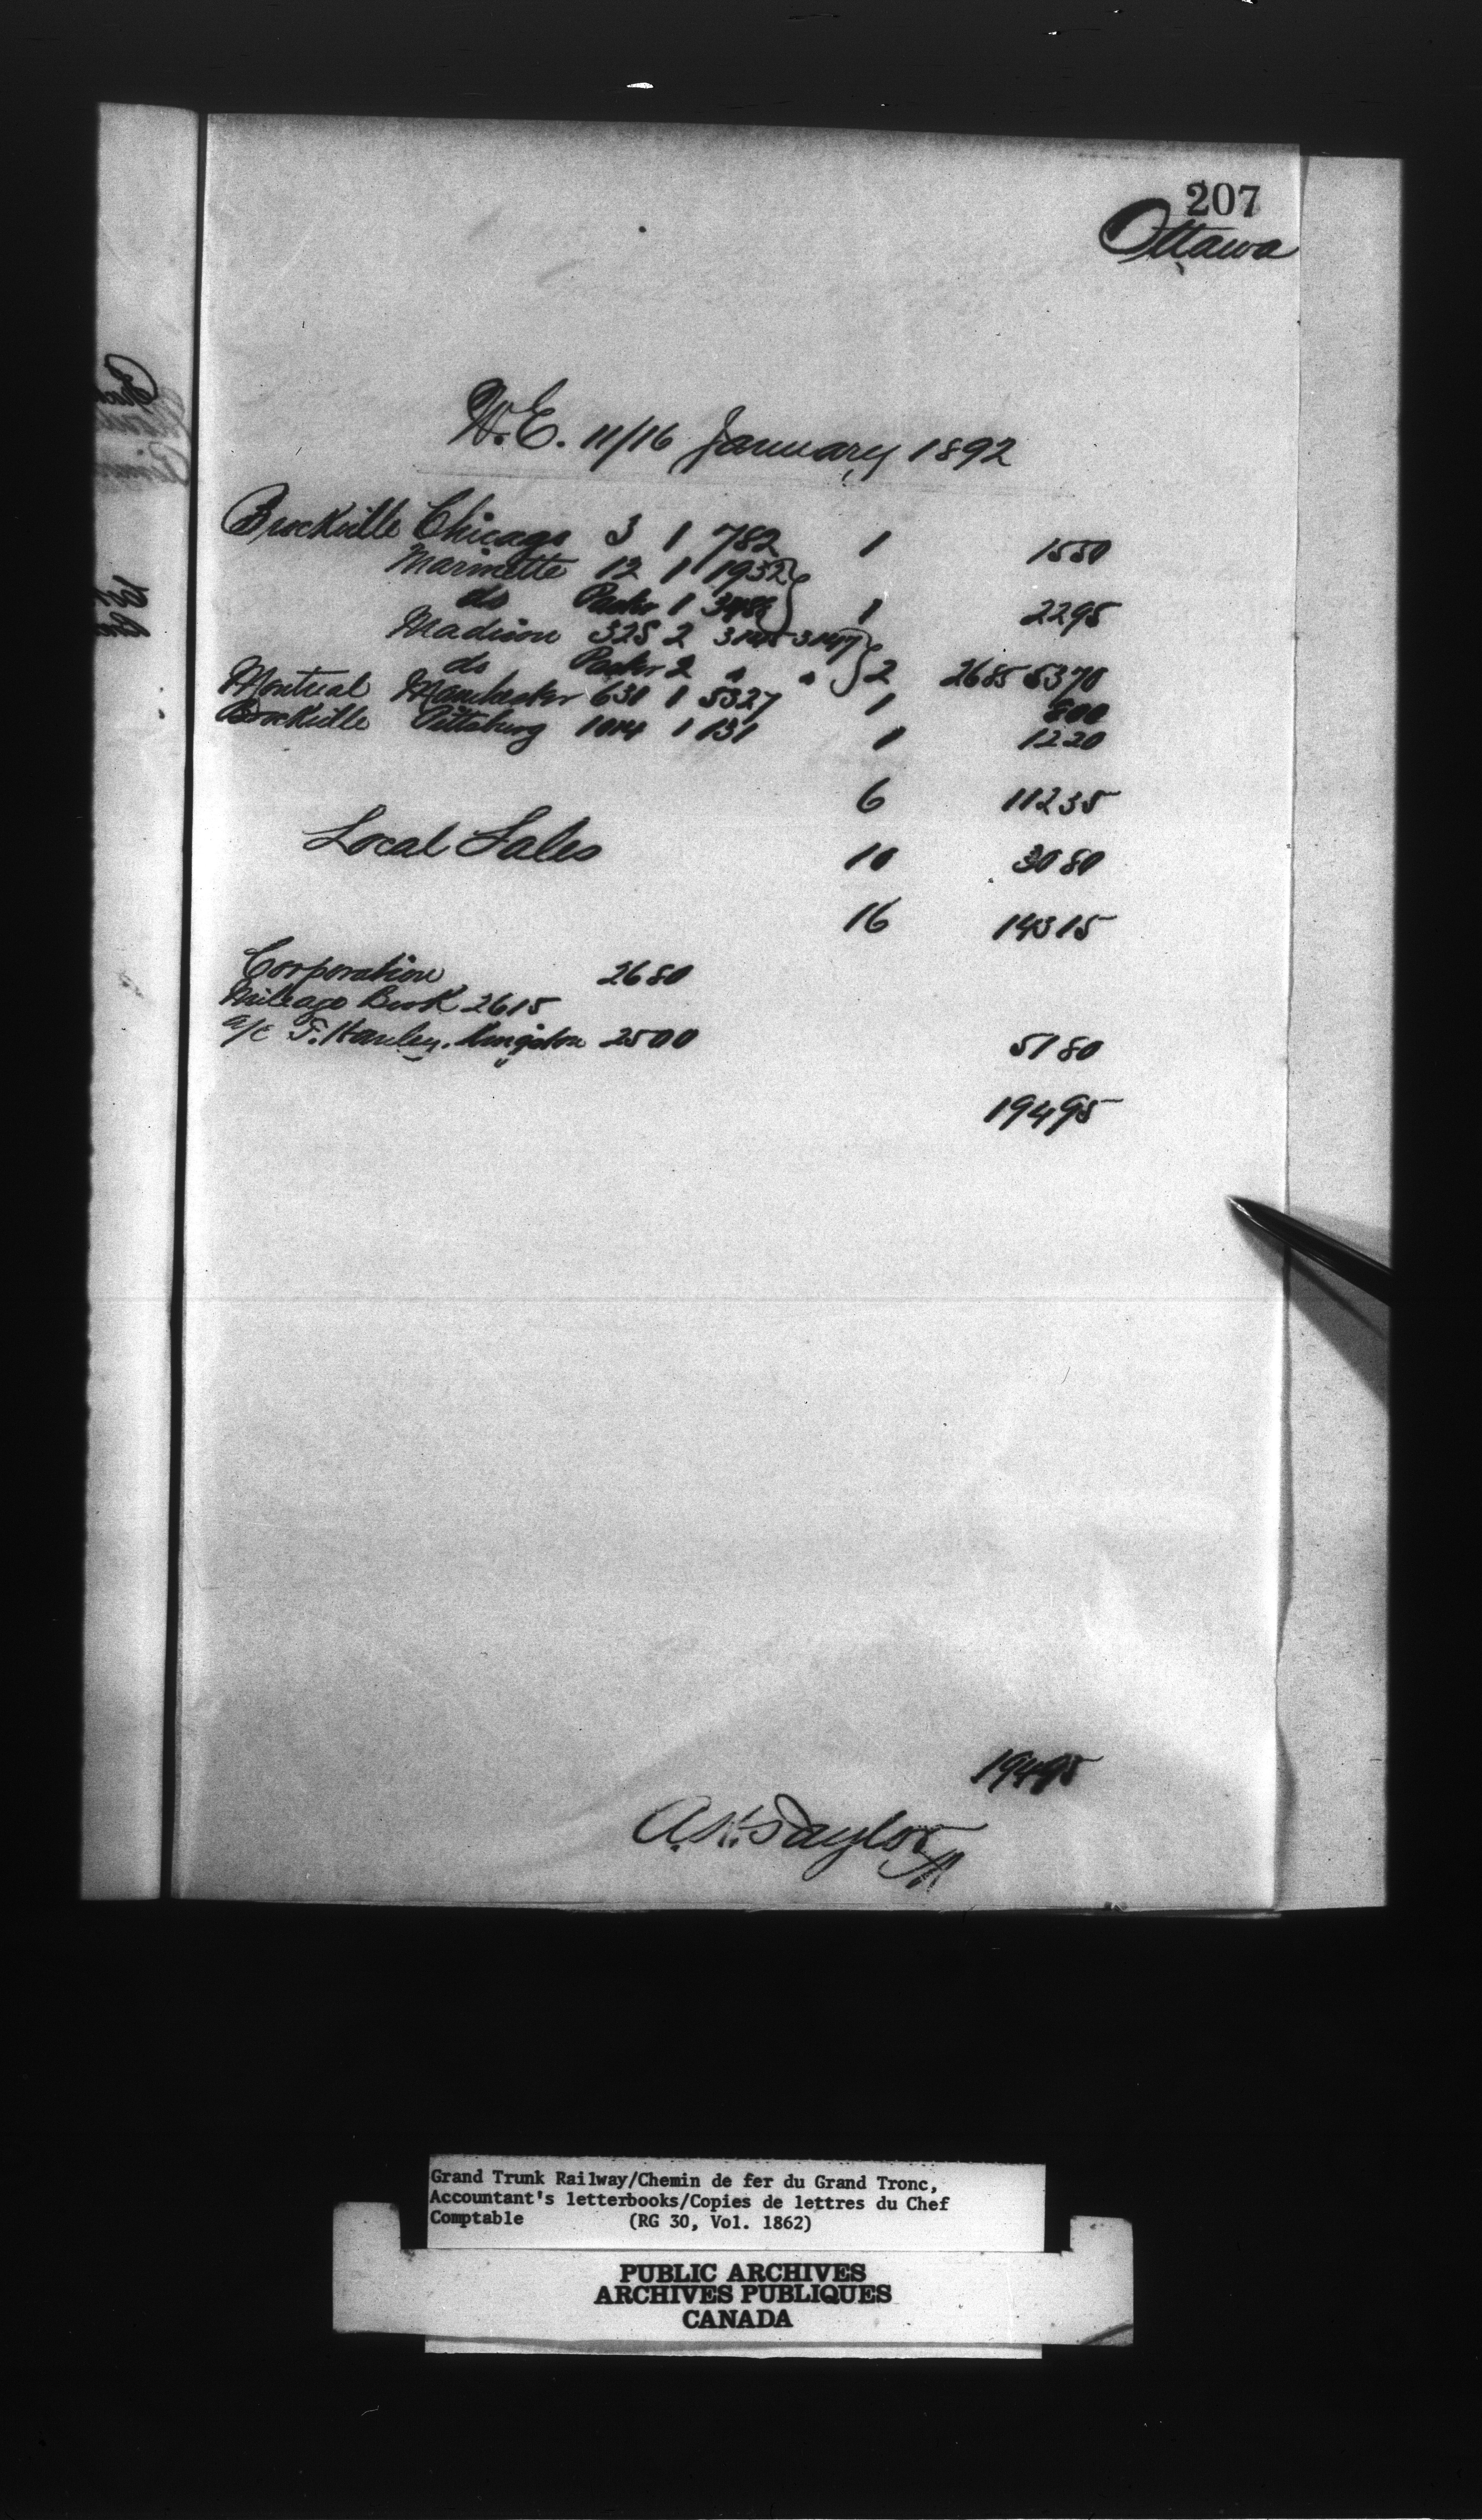 207
Ottawa
W.E. 11/16 January 1892
Brockville Chicago 3 1 782 1 1550
Marinette 12 1 1932
do 1 1 2295
Madison 325 2 3145-3147
do 2 " " 2 2685 5370
Montreal Manchester 631 1 5327 1 800
Brockville Pittsburg 1014 1 131 1 1220
6 11235
Local Sales 10 3080
16 14315
Corporation 2680
Mileage Book 2615
a/c T. Hanley. Kingston 2500 5180
19495
19495
Taylor
Grand Trunk Railway/Chemin de fer du Grand Tronc,
Accountant's letterbooks/Copies de lettres du Chef
Comptable (RG 30, Vol. 1862)
PUBLIC ARCHIVES
ARCHIVES PUBLIQUES
CANADA